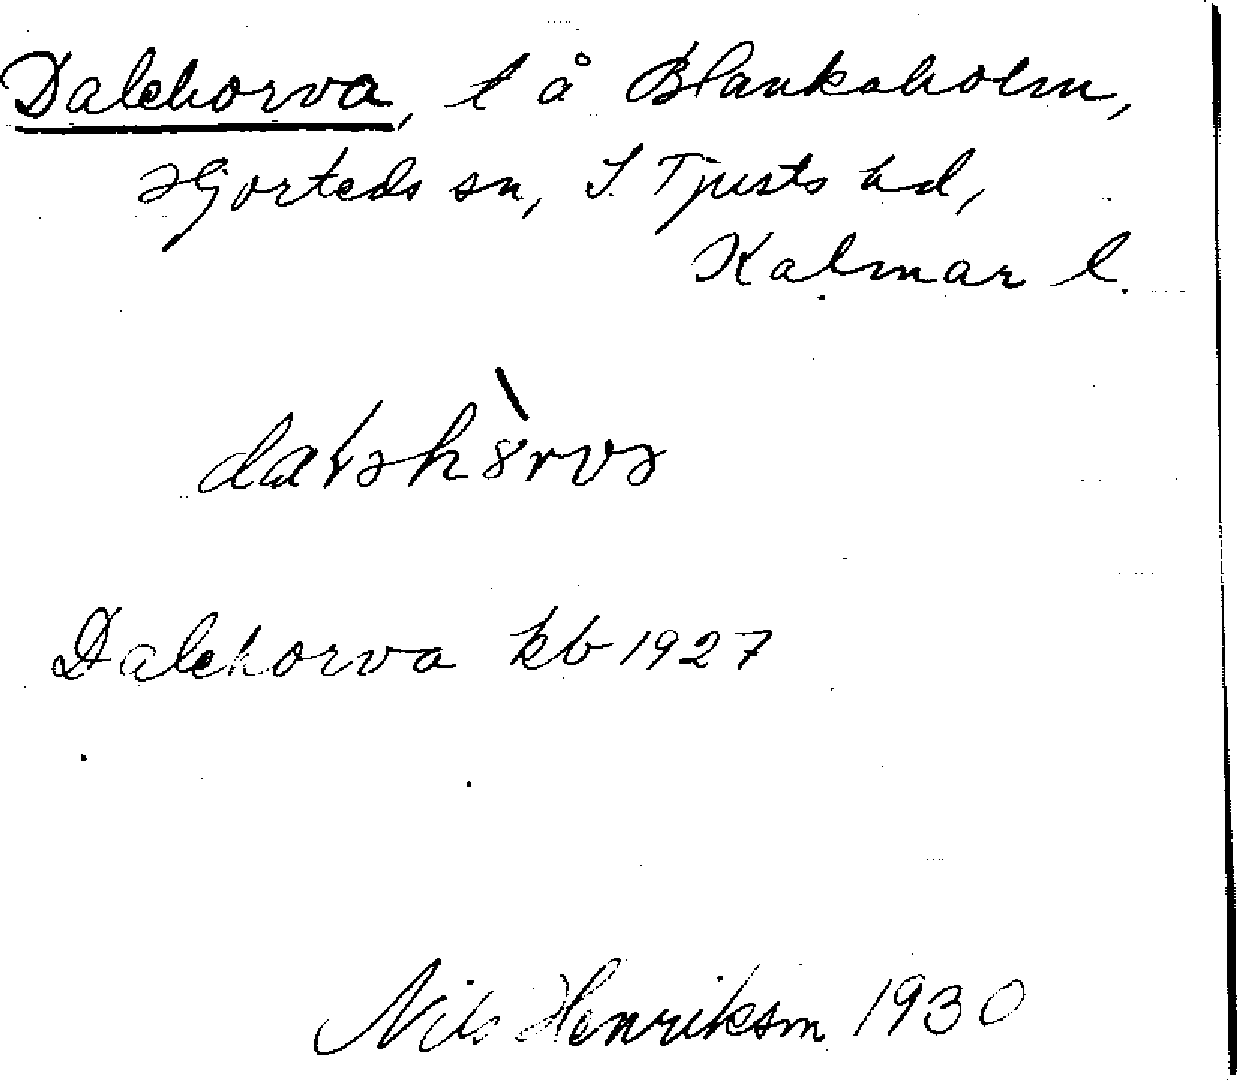 Dalehorva, l å Blankaholm,
Hjorteds sn, S. Tjusts hd,
Kalmar l.
Dalehorva kb 1927
Nils Henriksm 1930